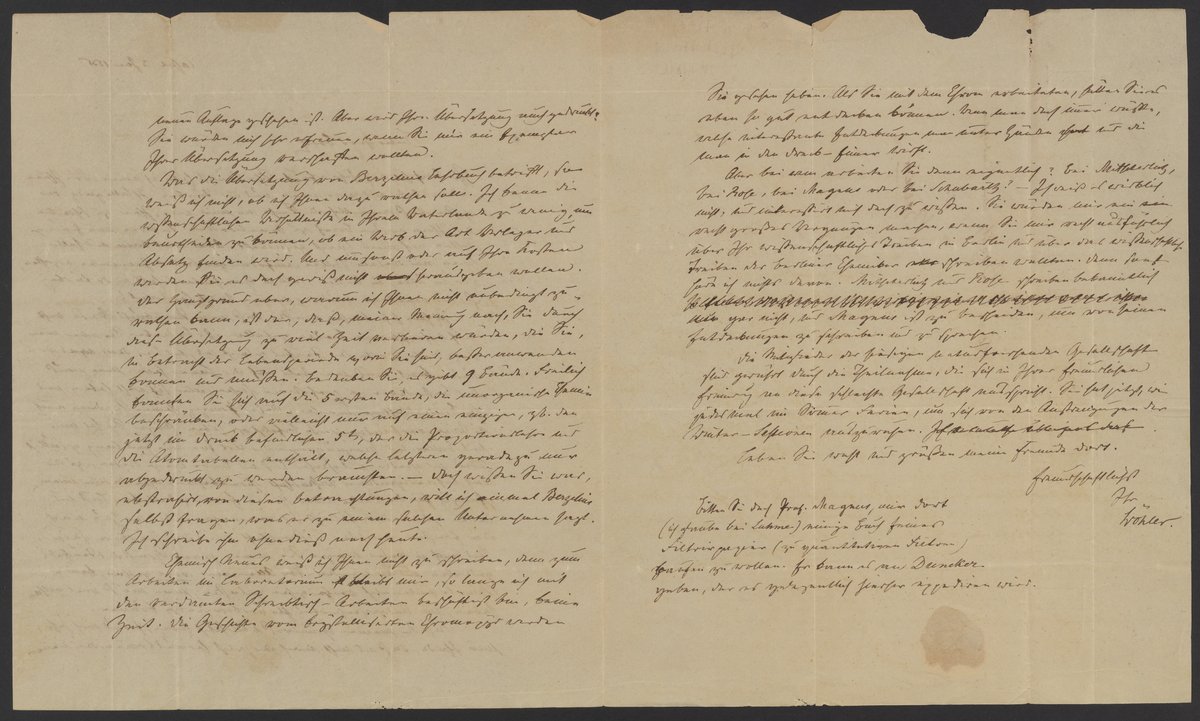 neuen Auflage geschehen ist. Aber wird Ihre Übersetzung auch gedruckt?
Sie würden mich sehr erfreuen, wenn Sie mir ein Exemplar
Ihrer Übersetzung verschaffen wollten.
Was die Übersetzung von Berzelius Lehrbuch betrifft, so
weiß ich nicht, ob ich Ihnen dazu rathen solle. Ich kenne die
wissenschaftlichen Verhältnisse in Ihrem Vaterlande zu wenig, um
beurtheilen zu können, ob ein Werk der Art Verleger und
Absatz finden wird. Und umsonst oder auf Ihre Kosten
werden Sie es doch gewiß nicht herausgeben wollen.
Der Hauptgrund aber, warum ich Ihnen nicht unbedingt zu-
rathen kann, ist der, daß, meiner Meinung nach, Sie durch
diese Übersetzung zu viel Zeit verlieren würden, die Sie,
in Betracht der Lebensperiode worin Sie sind, besser anwenden
können und müssen. Bedenken Sie, es gibt 9 Bände. Freilich
brauchten Sie sich auf die 5 ersten Bände, die unorganische Chemie
beschränken, oder vielleicht nur auf einen einzigen, z.B. den
jetzt im Druck befindlichen 5t, der die Proportionslehre und
die Atomtabellen enthält, welche letztere geradezu nur
abgedruckt zu werden brauchten. — Doch wissen Sie was,
abstrahirt von diesen Betrachtungen, will ich einmal Berzelius
selbst fragen, was er zu einem solchen Unternehmen sagt.
Ich schreibe ihm ohnedieß noch heute.
Chemisch Neues weiß ich Ihnen nicht zu schreiben, denn zum
Arbeiten im Laboratorium bleibt mir, so lange ich mit
den verdammten Schreibtisch-Arbeiten beschäftigt bin, keine
Zeit. Die Geschichte vom krystallisirten Chromoxyd werden
Sie gesehen haben. Als Sie mit dem Chrom arbeiteten, hätten Sie es
eben so gut entdecken können. Wenn man doch immer wüßte,
welche interessante Entdeckungen man unter Händen hat und die
man in den Dreck-Eimer wirft.
Aber bei wem arbeiten Sie denn eigentlich? bei Mitscherlich,
bei Rose, bei Magnus oder bei Schubarth? — Ich weiß es wirklich
nicht, und interessirt mich doch zu wissen. Sie würden mir ein
recht großes Vergnügen machen, wenn Sie mir recht ausführlich
über Ihr wissenschaftliches Treiben in Berlin und über das wissenschaftliche
Treiben der Berliner Chemiker schreiben wollten. denn sonst
höre ich nichts davon. Mitscherlich und Rose schreiben bekanntlich
gar nicht, und Magnus ist zu bescheiden, um von seinen
Entdeckungen zu schreiben und zu sprechen.
Die Mitglieder der hiesigen naturforschenden Gesellschaft
sind gerührt durch die Theilnahme, die sich in Ihrer freundlichen
Erinnerung an diese gelehrte Gesellschaft ausspricht. Sie hat jetzt, wie
jedesmal im Sommer Ferien, um sich von den Anstrengungen der
Winter-Sessionen auszuruhen.
Leben Sie wohl und grüßen meine Freunde dort.
freundschaftlichst
Ihr
Wöhler.
Bitten Sie doch Prof. Magnus, mir dort
(ich glaube bei Luhme) einige Buch feines
Filtrirpapier (zu quantitativen Filtern)
kaufen zu wollen. Er kann es an Duncker
geben, der es gelegentlich hierher expediren wird.